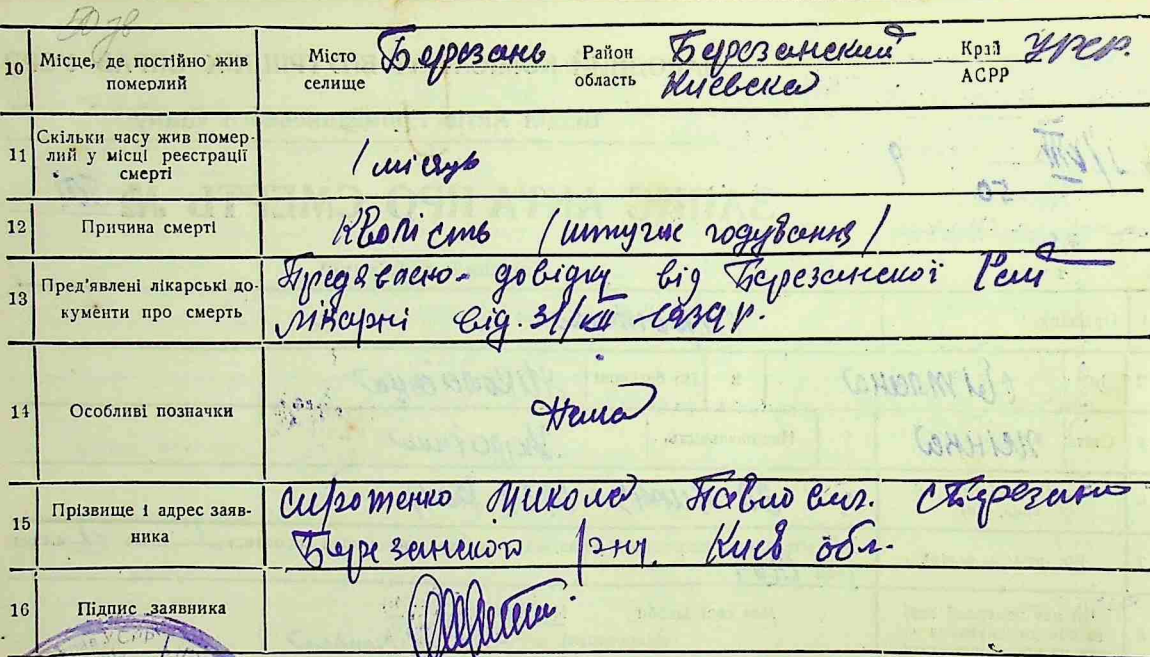 10 Місце, де постійно жив померлий Місто селище Березань Район область Березанский Киевска Край АСРР УРСР.
11 Скільки часу жив помер-лий у місці реєстрації смерті 1 місяць
12 Причина смерті Кволість (штучне годування)
13 Пред'явлені лікарські до-кументи про смерть довідку від Березанскої
лікарні від. 31/XII-1939 р.
14 Особливі позначки Нема
15 Прізвище і адрес заяв-ника Сиротенко Микола Павлович. с Березань
Березанского р-ну. Киев обл.
16 Підпис заявника